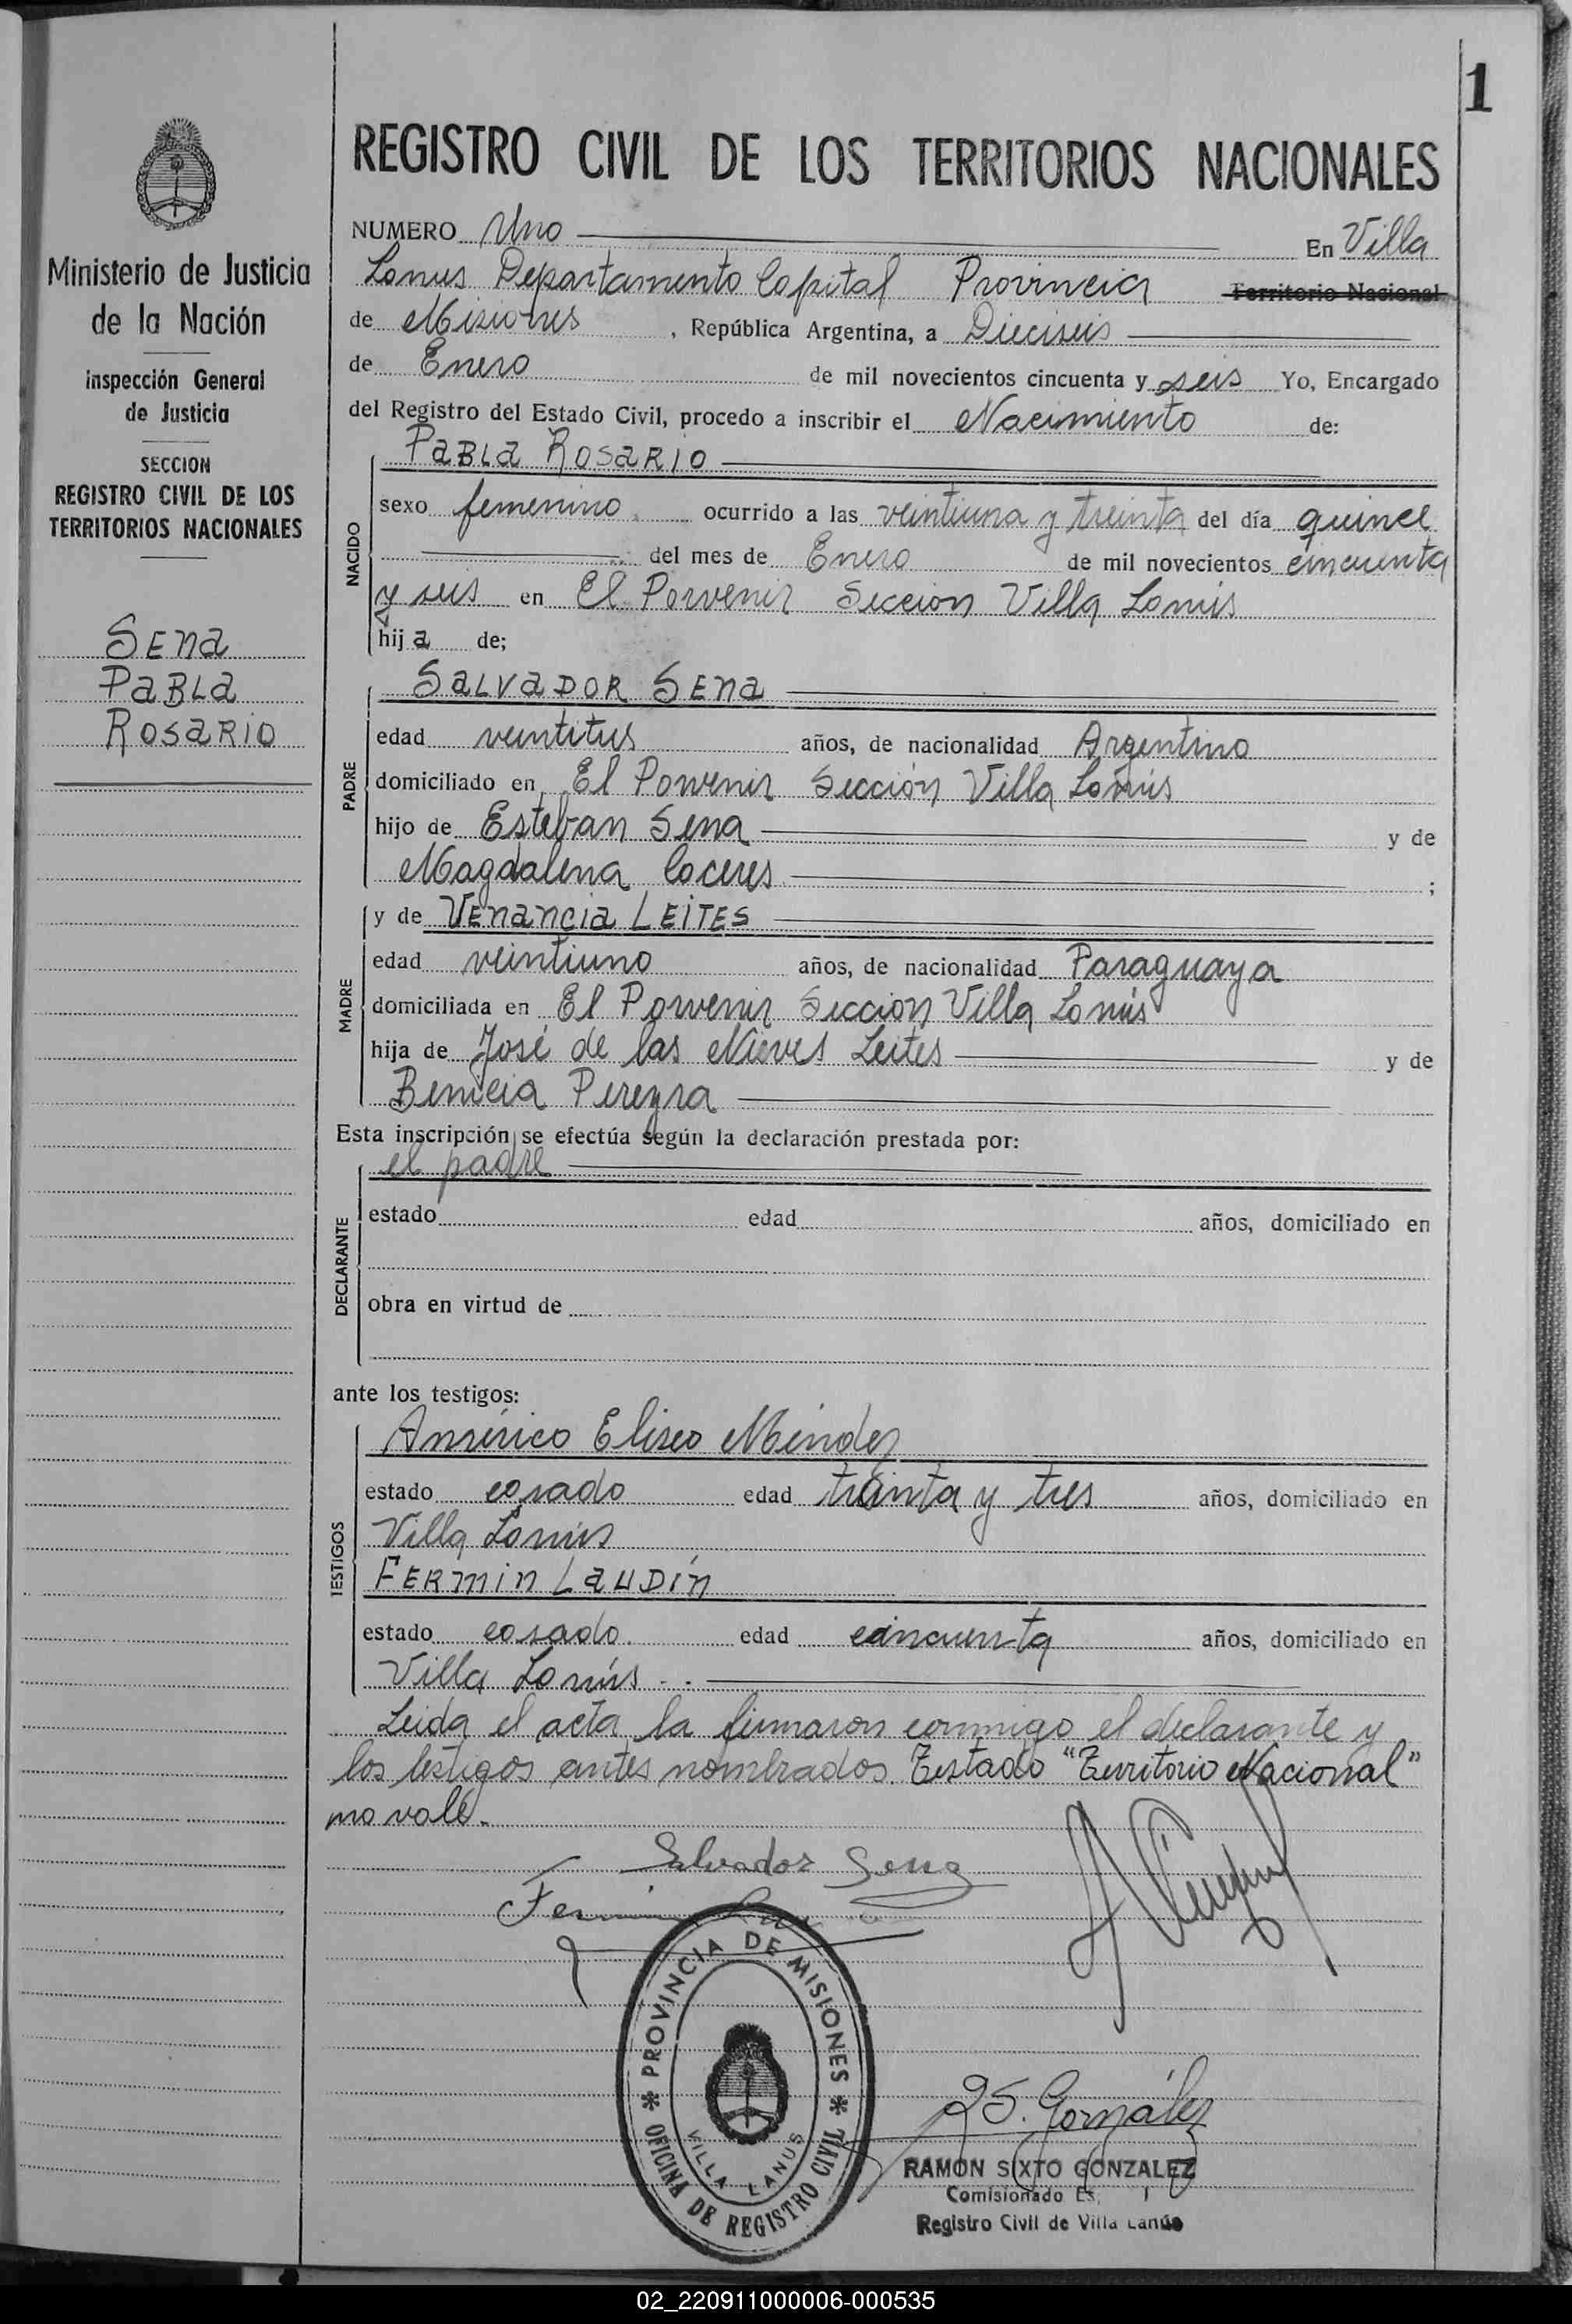 1
Ministerio de Justicia
de la Nación
Inspección General
de Justicia
SECCION
REGISTRO CIVIL DE LOS
TERRITORIOS NACIONALES
SENa
PaBLa
ROSaRIO
REGISTRO CIVIL DE LOS TERRITORIOS NACIONALES
NUMERO Uno En Villa
Lanus Departamento Capital Provincia Territorio Nacional
de Misiones, República Argentina, a Dieciseis
de Enero de mil novecientos cincuenta y seis Yo, Encargado
del Registro del Estado Civil, procedo a inscribir el Nacimiento de:
PaBLa ROSaRIO
NACIDO
sexo femenino ocurrido a las veintiuna y treinta del día quince
del mes de Enero de mil novecientos cincuenta
y seis en El Porvenir Sección Villa Lanús
hija de;
SaLVaDOR SENa
PADRE
edad veintitres años, de nacionalidad Argentino
domiciliado en El Porvenir Sección Villa Lanús
hijo de Esteban Sena y de
Magdalena Caceres ;
y de VENanCia LEITES
MADRE
edad veintiuno años, de nacionalidad Paraguaya
domiciliada en El Porvenir Sección Villa Lanús
hija de José de las Nieves Leites y de
Benicia Pereyra
Esta inscripción se efectúa según la declaración prestada por:
el padre
DECLARANTE
estado edad años, domiciliado en
obra en virtud de
ante los testigos:
Américo Eliseo Méndez
TESTIGOS
estado casado edad treinta y tres años, domiciliado en
Villa Lanús
FERMIN LaUDÍN
estado casado. edad cincuenta años, domiciliado en
Villa Lanús
Leida el acta la firmaron conmigo el declarante y
los testigos antes nombrados. Testado "Territorio Nacional"
no vale.-
Salvador Sena
Fermin
PROVINCIA DE MISIONES
OFICINA DE REGISTRO CIVIL
VILLA LANUS
RS. González
RAMON SIXTO GONZALEZ
Comisionado
Registro Civil de Villa Lanús
02_220911000006-000535